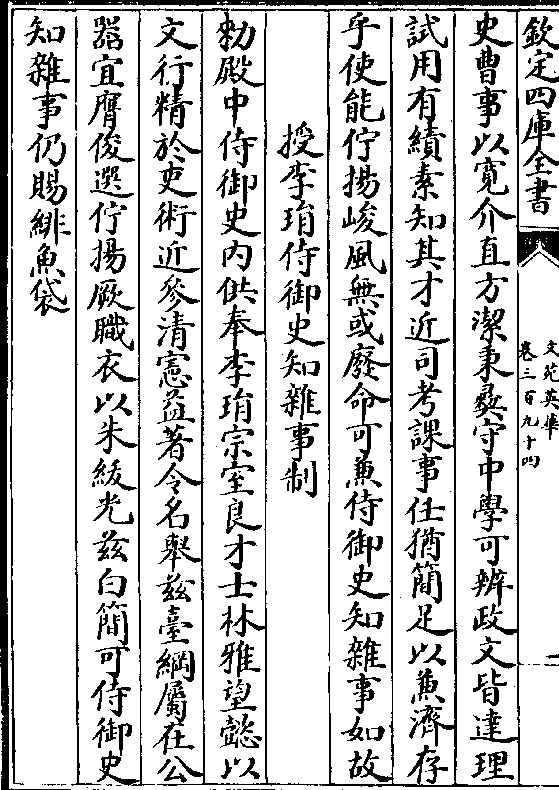 欽定四庫全書
文苑英華
卷三百九十四
史曹事以寛介直方潔秉彞守中學可辨政文皆達理
試用有績素知其才近司考課事任猶簡足以兼濟存
乎使能佇揚峻風無或廢命可兼侍御史知雜事如故
授李琄侍御史知雜事制
勑殿中侍御史内供奉李琄宗室良才士林雅望懿以
文行精於吏術近參清憲益著令名舉兹臺綱屬在公
器宜膺俊選佇揚厥職衣以朱紱光兹白簡可侍御史
知雜事仍賜緋魚袋